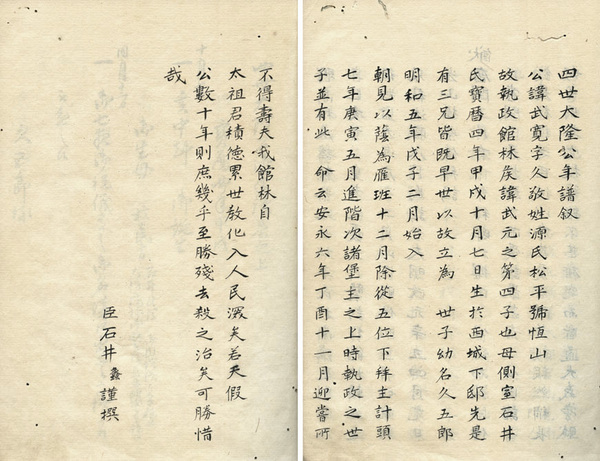 四世大隆公年譜叙
公諱武寛字久敬姓源氏松平號恆山
故執政館林矦諱武元之第四子也母側室石井
氏寶曆四年甲戌十月七日生於西城下邸先是
有三兄皆既早世以故立為　世子幼名久五郎
明和五年戊子二月始入
朝見以蔭為雁班十二月除從五位下拜主計頭
七年庚寅五月進階次諸堡主之上時執政之世
子並有此　命云安永六年丁酉十一月迎嘗所
不得壽夫我館林自
太祖君積德累世教化入人民深矣若天假
公數十年則庶幾乎至勝殘去殺之治矣可勝惜
哉
臣石井蠡謹撰